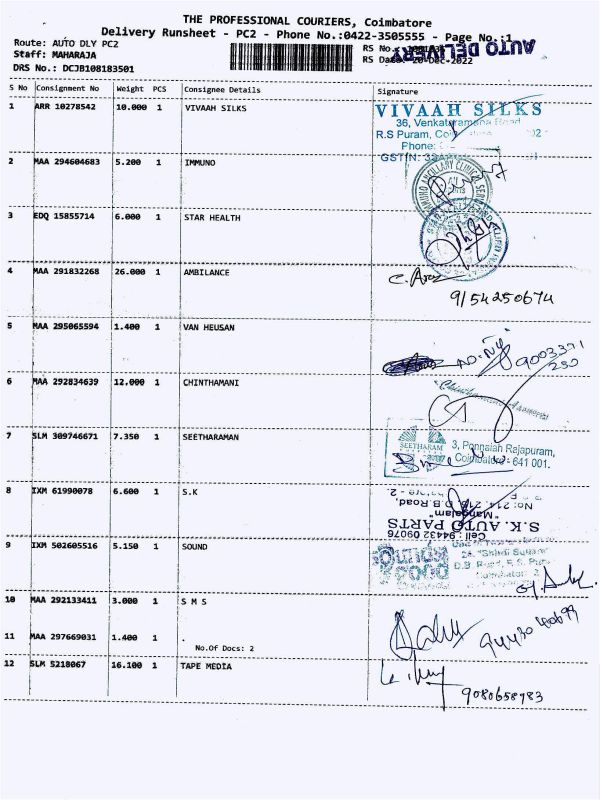 THE PROFESSIONAL COURIERS, Coimbatore
Delivery Runsheet - PC2 - Phone No.:0422-3505555 - Page No.:1
AUTO DELIVERY
Route: AUTO DLY PC2
RS No.:
Staff: MAHARAJA
RS Date: 20-Dec-2022
DRS No.: DCJB108183501
S No Consignment No Weight PCS Consignee Details Signature
1 ARR 10278542 10.000 1 VIVAAH SILKS
VIVAAH SILKS
36, Venkataramana Road
R.S Puram,
Phone:
GSTIN:
2 MAA 294604683 5.200 1 IMMUNO
ANCILLARY CLINICAL
3 EDQ 15855714 6.000 1 STAR HEALTH
4 MAA 291832268 26.000 1 AMBILANCE
9154250674
5 MAA 295065594 1.400 1 VAN HEUSAN
9003371
250
6 MAA 292834639 12.000 1 CHINTHAMANI
7 SLM 309746671 7.350 1 SEETHARAMAN
SEETHARAM
3, Ponnaiah Rajapuram,
Coimbatore - 641 001.
8 IXM 61990078 6.600 1 S.K
D.B.Road,
"Mangalam"
S.K AUTO PARTS
Cell : 94432 09076
9 IXM 502605516 5.150 1 SOUND
10 MAA 292133411 3.000 1 S M S
11 MAA 297669031 1.400 1 .
No.Of Docs: 2
12 SLM 5218067 16.100 1 TAPE MEDIA
9080658983